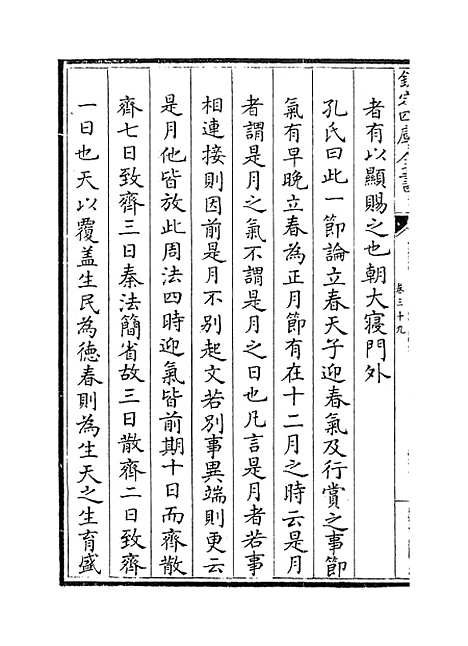 欽定四庫全書
卷三十九
者有以顯賜之也朝大寢門外
孔氏曰此一節論立春天子迎春氣及行賞之事節
氣有早晚立春為正月節有在十二月之時云是月
者謂是月之氣不謂是月之日也凡言是月者若事
相連接則因前是月不別起文若別事異端則更云
是月他皆放此周法四時迎氣皆前期十日而齊散
齊七日致齊三日秦法簡省故三日散齊二日致齊
一日也天以覆蓋生民為德春則為生天之生育盛